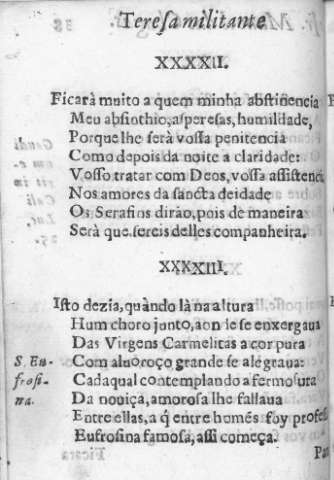 Teresa militante
XXXXII.
Ficarà muito a quem minha abstinencia
Meu absinthio, asperesas, humildade,
Porque lhe serà vossa penitencia
Como depois da noite a claridade:
Vosso tratar com Deos, vossa assistenci
Nos amores da sancta deidade
Os Serafins dirão, pois de maneira
Serà que sereis delles companheira.
XXXXIII.
Isto dezia, quàndo là na altura
Hum choro junto, aonde se enxergaua
Das Virgens Carmelitas a cor pura
S. Eu- Com aluoroço grande se alegraua:
frosi- Cadaqual contemplando a fermosura
na. Da nouiça, amorosa lhe fallaua
Entre ellas, a q̃ entre homẽs foy profess
Eufrosina famosa, assi começa.